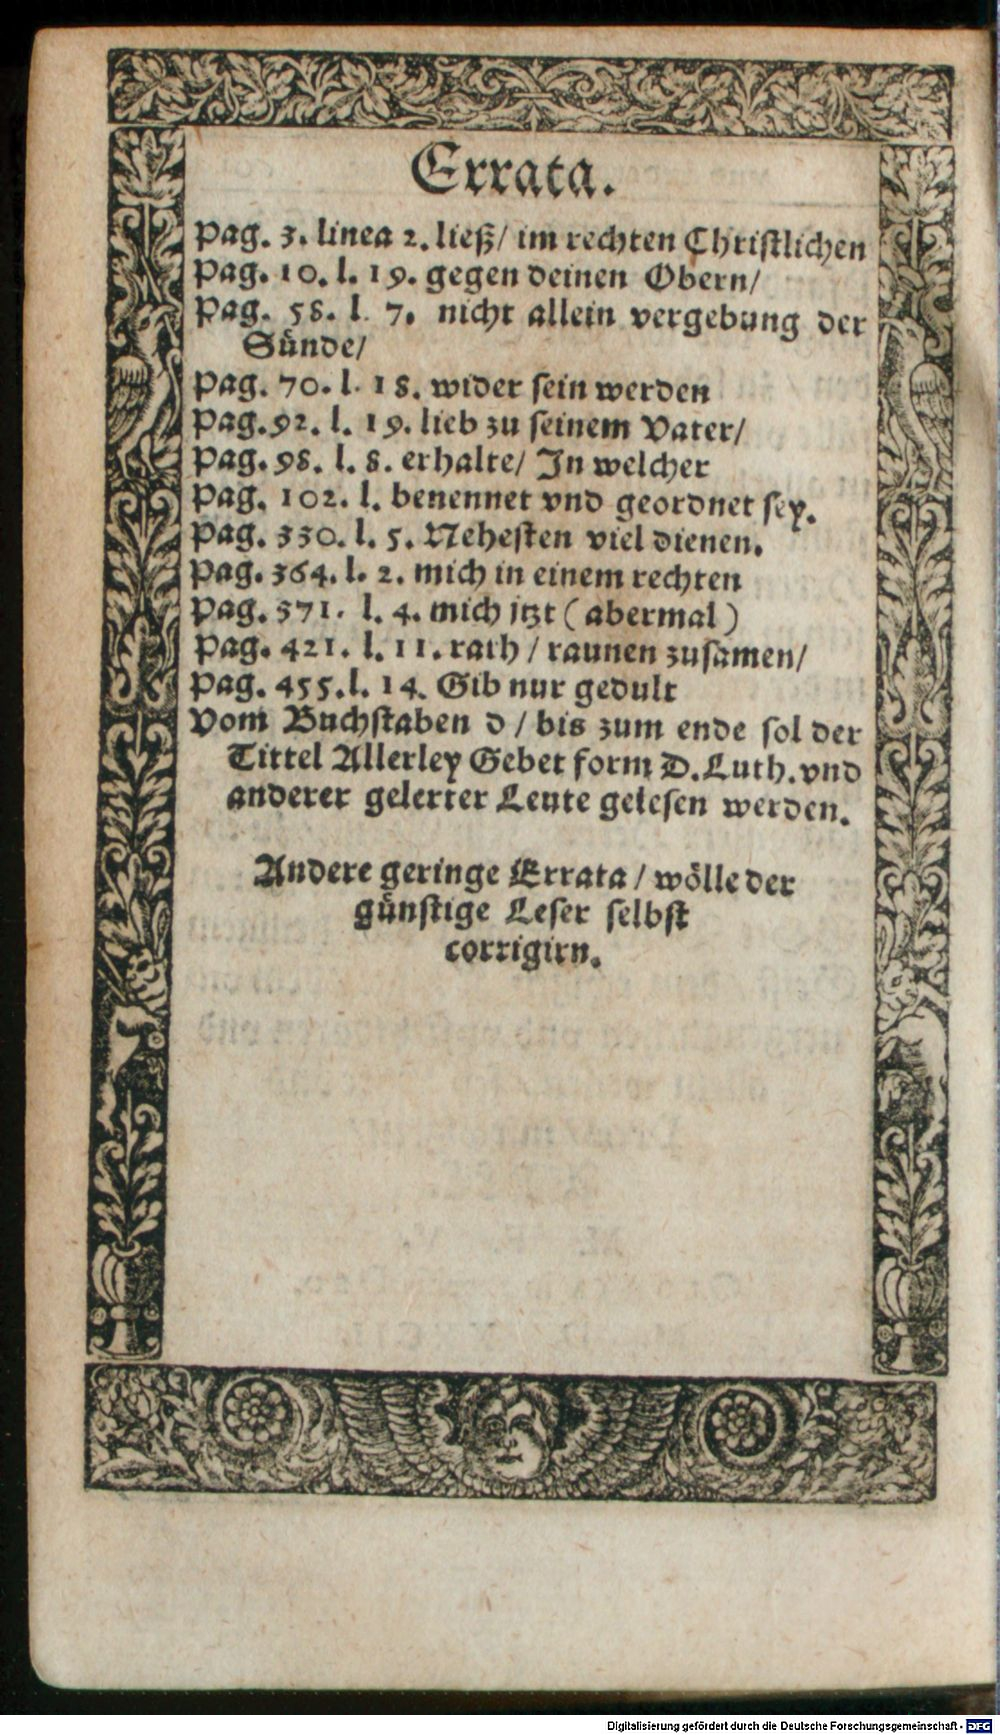 Errata.
Pag. 3. linea 2. ließ/ im rechten Christlichen
Pag. 10. l. 19. gegen deinen Obern/
Pag. 58. l. 7. nicht allein vergebung der
Sünde/
Pag. 70. l. 18. wider sein werden
Pag. 92. l. 19. lieb zu seinem Vater/
Pag. 98. l. 8. erhalte/ In welcher
Pag. 102. l. benennet vnd geordnet sey.
Pag. 330. l. 5. Nehesten viel dienen.
Pag. 364. l. 2. mich in einem rechten
Pag. 371. l. 4. mich jtzt (abermal)
Pag. 421. l. 11. rath/ raunen zusamen/
Pag. 455. l. 14. Gib nur gedult
Vom Buchstaben d/ bis zum ende sol der
Tittel Allerley Gebet form D. Luth. vnd
anderer gelerter Leute gelesen werden.
Andere geringe Errata/ wölle der
günstige Leser selbst
corrigirn.
Digitalisierung gefördert durch die Deutsche Forschungsgemeinschaft - DFG